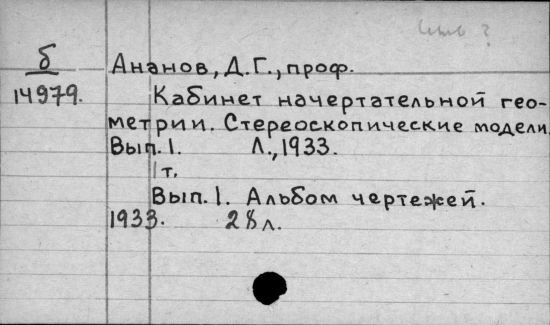 б
14979.
Ананов, Д.Г., проф.
Кабинет начертательной гео-
метрии. Стереоскопические модели.
Вып. 1. Л., 1933.
1 т.
Вып. 1. Альбом чертежей.
1933. 28 л.